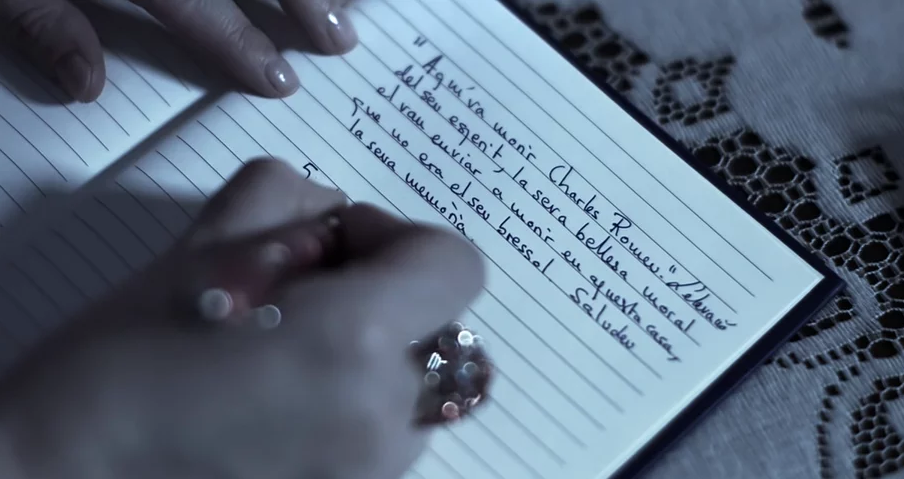 "Aquí va morir Charles Romeu." L'elevació
del seu esperit, la seva bellesa moral
el van enviar a morir en aquesta casa,
que no era el seu bressol. Saludeu
la seva memòria.
S